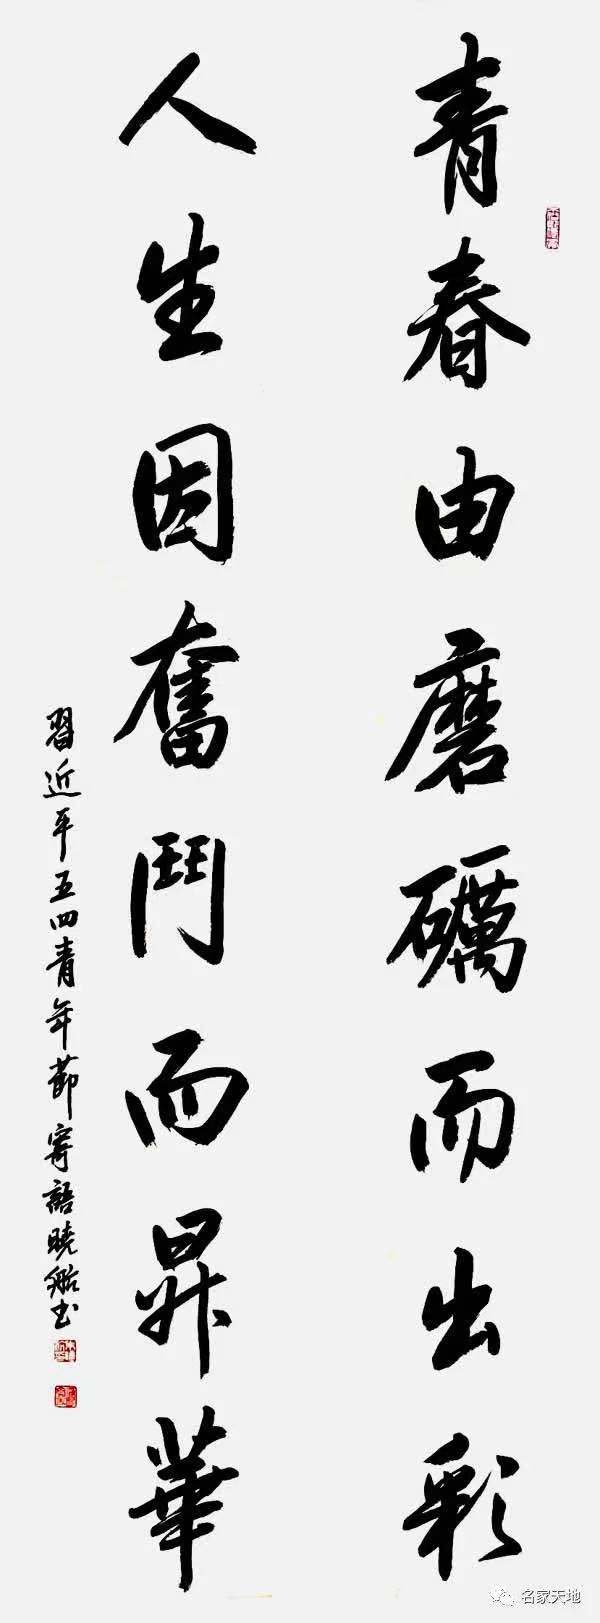 青春由磨礪而出彩
人生因奮鬥而昇華
習近平五四青年節寄語曉船书
名家天地